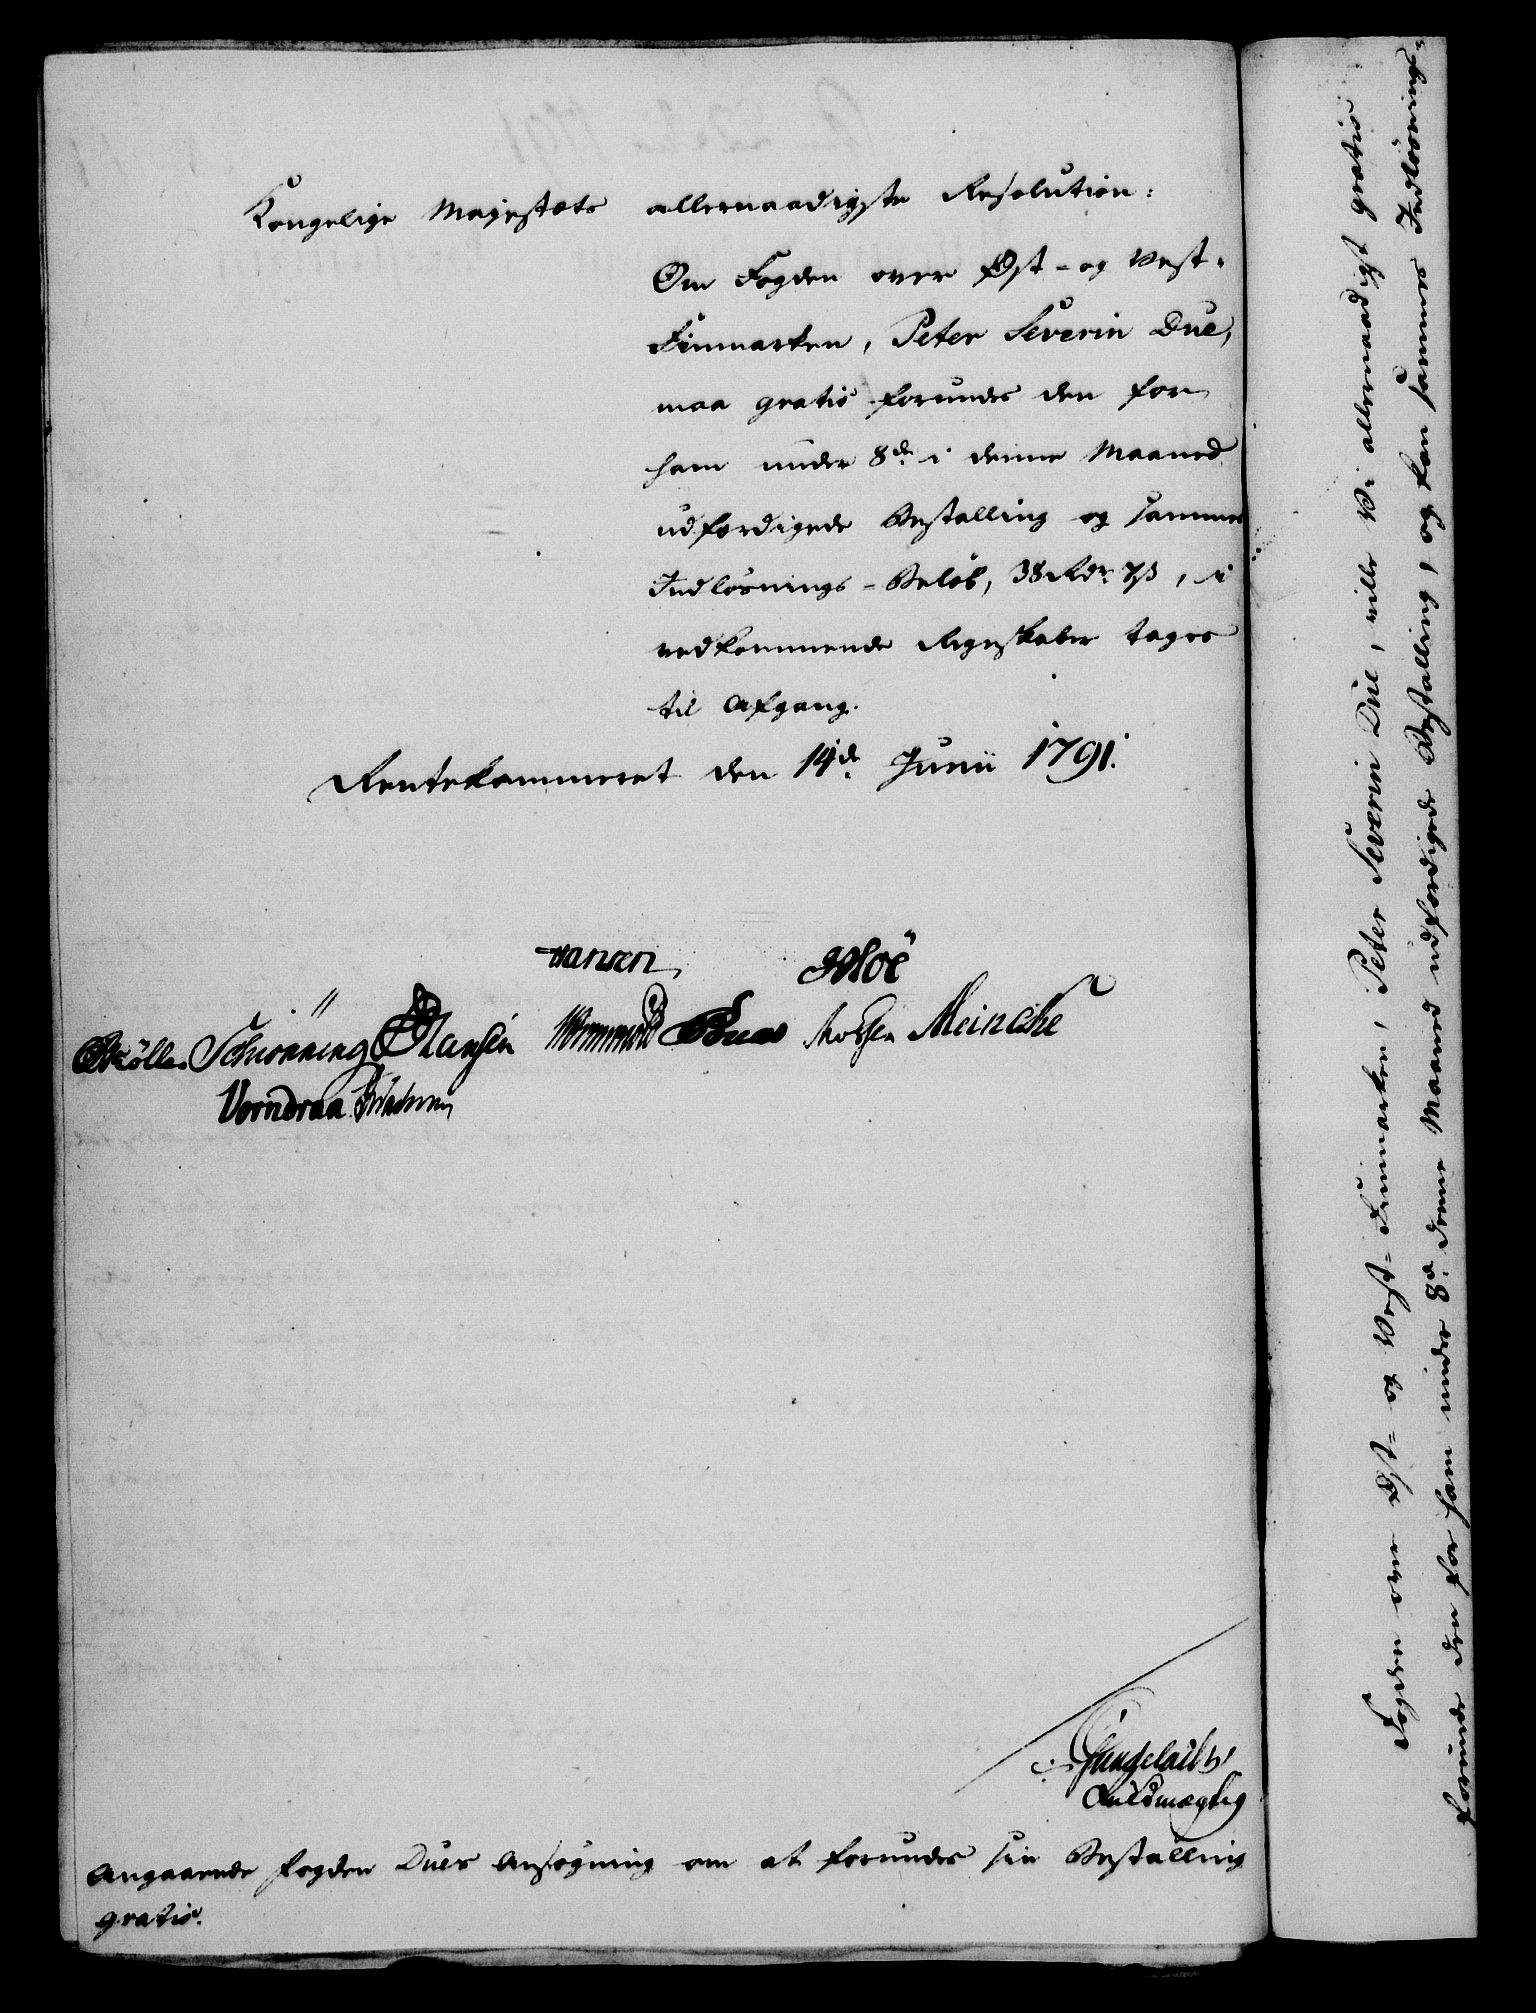 Kongelige Majestets allernaadigste Resolution:
Om Fogden over Øst- og Vest-
Finmarken, Peter Severin Due,
maa gratis forundes den for
ham under 8de i denne Maaned
udfærdigede Bestalling og sammes
Indløsnings-Beløb, 38 Rdr. 7 ß, i
vedkommende Regnskaber tages
til Afgang.
Rentekammeret den 14de Junii 1791.
Hansen
Schiønning Hansen Meincke
Vorndran
Fuldmægtig
Angaaende Fogden Dues Ansøgning om at forundes sin Bestalling
gratis.
Fogden over Øst- og Vest-Finmarken, Peter Severin Due, ville Vi allernaadigst gratis
forunde den for ham under 8de denne Maaned udfærdigede Bestalling, og kan sammes Indløsnings-